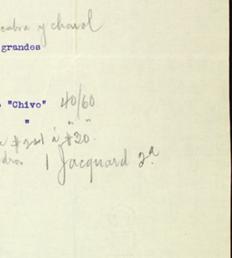 cabra y chaval
grandes
"Chivo" 40/60
" " "
à $20.
1 Jacquard 2ª